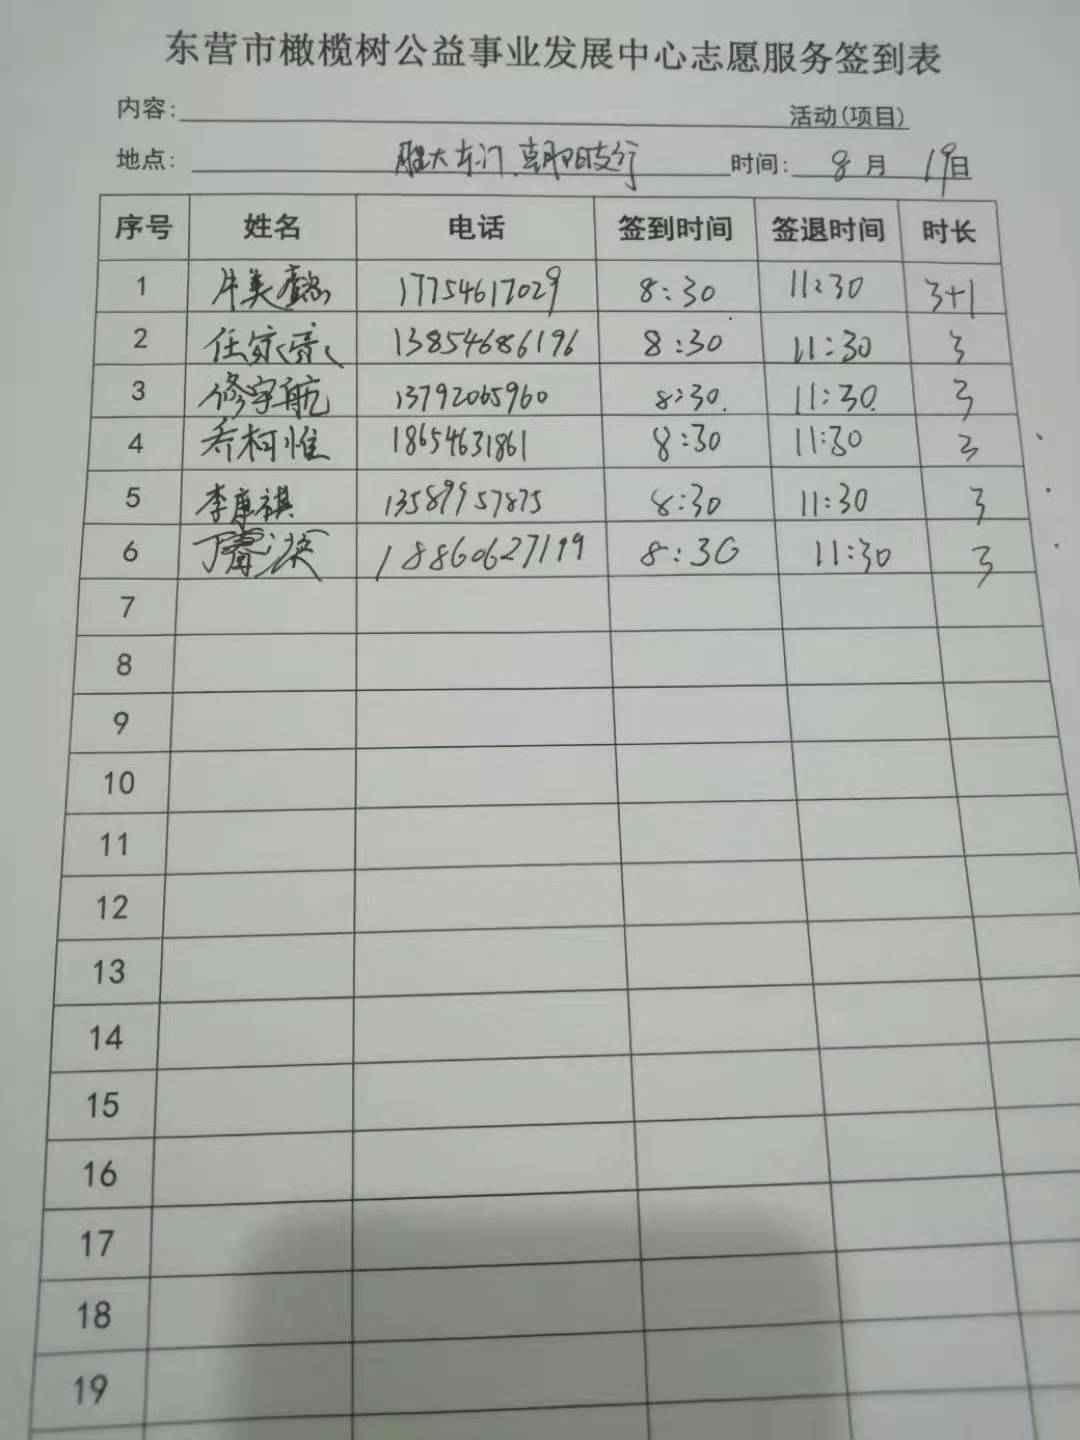 东营市橄榄树公益事业发展中心志愿服务签到表
内容: 活动(项目)
地点: 胜大东门.朝阳支行 时间: 8月 19日
序号 姓名 电话 签到时间 签退时间 时长
1 17754617029 8:30 11:30 3+1
2 任家 13854686196 8:30 11:30 3
3 修宇航 13792065960 8:30. 11:30. 3
4 乔柯惟 18654631861 8:30 11:30 3
5 李康祺 13589957875 8:30 11:30 3
6 丁 18860627199 8:30 11:30 3
7
8
9
10
11
12
13
14
15
16
17
18
19